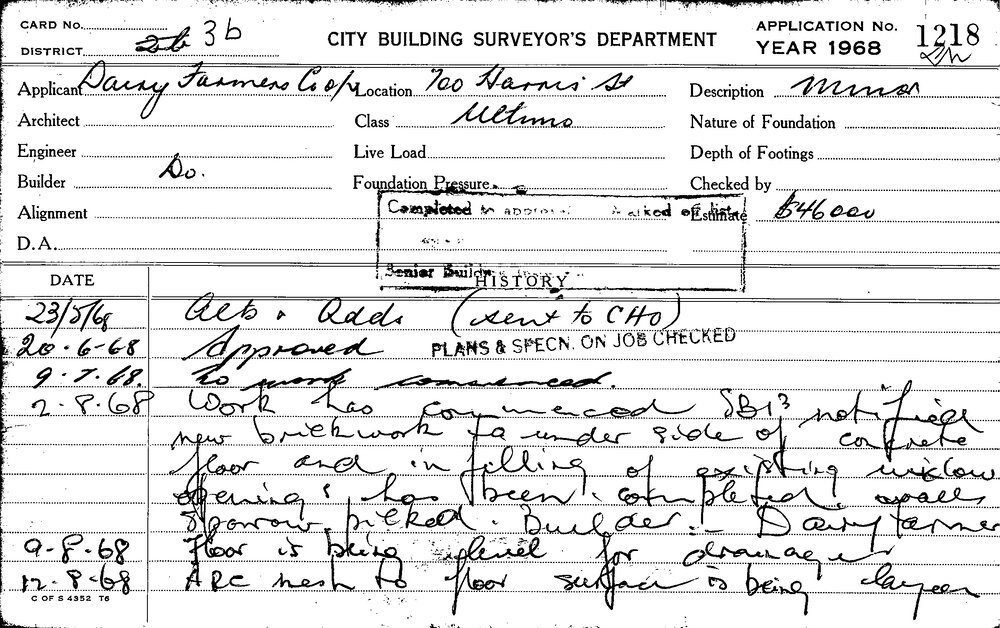 CARD No.
DISTRICT 3b
CITY BUILDING SURVEYOR'S DEPARTMENT
APPLICATION No. 1218
YEAR 1968
Applicant Dairy Farmers Coop Location 700 Harris St Description Minor
Architect Class Ultimo Nature of Foundation
Engineer Live Load Depth of Footings
Builder Do. Foundation Pressure Checked by
Alignment Completed to approval Marked off list Estimate $46000
D.A.
Senior Building
DATE HISTORY
23/5/68 Alts & Adds (sent to CHO)
20-6-68 Approved PLANS & SPECN. ON JOB CHECKED
9.7.68. No work commenced.
2-8-68 Work has commenced SB13 notified
new brickwork to under side of concrete
floor and in filling of existing window
openings has been completed walls
Sparrow picked. Builder - Dairy farmer
9-8-68 Floor is being level for drainage
12-8-68 ARC mesh to floor surface is being
C OF S 4352 T6